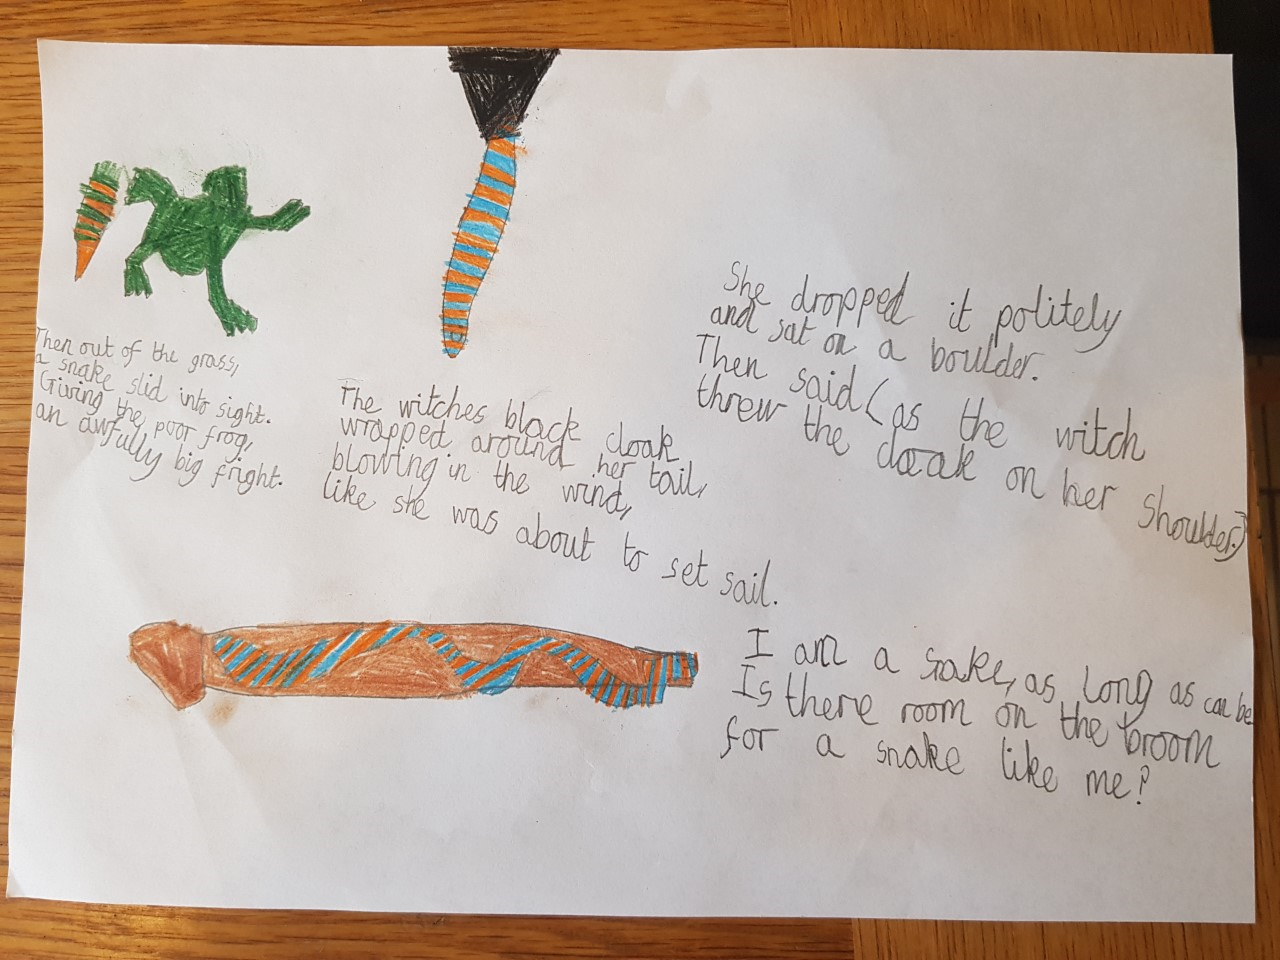 Then out of the grass,
a snake slid into sight.
Giving the poor frog,
an awfully big fright.
The witches black cloak
wrapped around her tail,
blowing in the wind,
like she was about to set sail.
She dropped it politely
and sat on a boulder.
Then said (as the witch
threw the cloak on her shoulder.)
I am a snake, as long as can be
Is there room on the broom
for a snake like me?